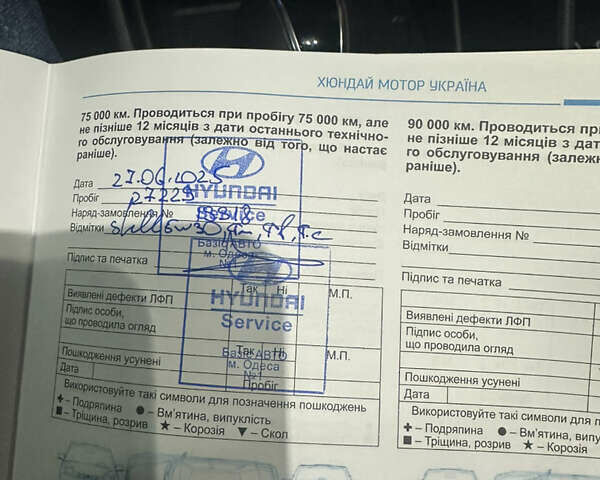 ХЮНДАЙ МОТОР УКРАЇНА
75 000 км. Проводиться при пробігу 75 000 км, але
не пізніше 12 місяців з дати останнього технічно-
го обслуговування (залежно від того, що настає
раніше).
Дата 27.06.2025
Пробіг
Наряд-замовлення №
Відмітки Shell 5w30
Підпис та печатка
HYUNDAI
Service
БазісАВТО
м. Одеса
Так Ні
М.П.
Виявлені дефекти ЛФП
Підпис особи,
що проводила огляд
HYUNDAI
Service
Так Ні
М.П.
БазісАВТО
м. Одеса
№1
Пошкодження усунені
Дата
Пробіг
Використовуйте такі символи для позначення пошкоджень
✚ – Подряпина ● – Вм'ятина, випуклість
■ – Тріщина, розрив ★ – Корозія ▼ – Скол
90 000 км. Проводиться при
не пізніше 12 місяців з дат
го обслуговування
раніше).
Дата
Пробіг
Наряд-замовлення №
Відмітки
Підпис та печатка
Виявлені дефекти ЛФП
Підпис особи,
що проводила огляд
Пошкодження усунені
Дата
Використовуйте такі символи
✚ – Подряпина ● – Вм'ятина, випу
■ – Тріщина, розрив ★ – Корозія